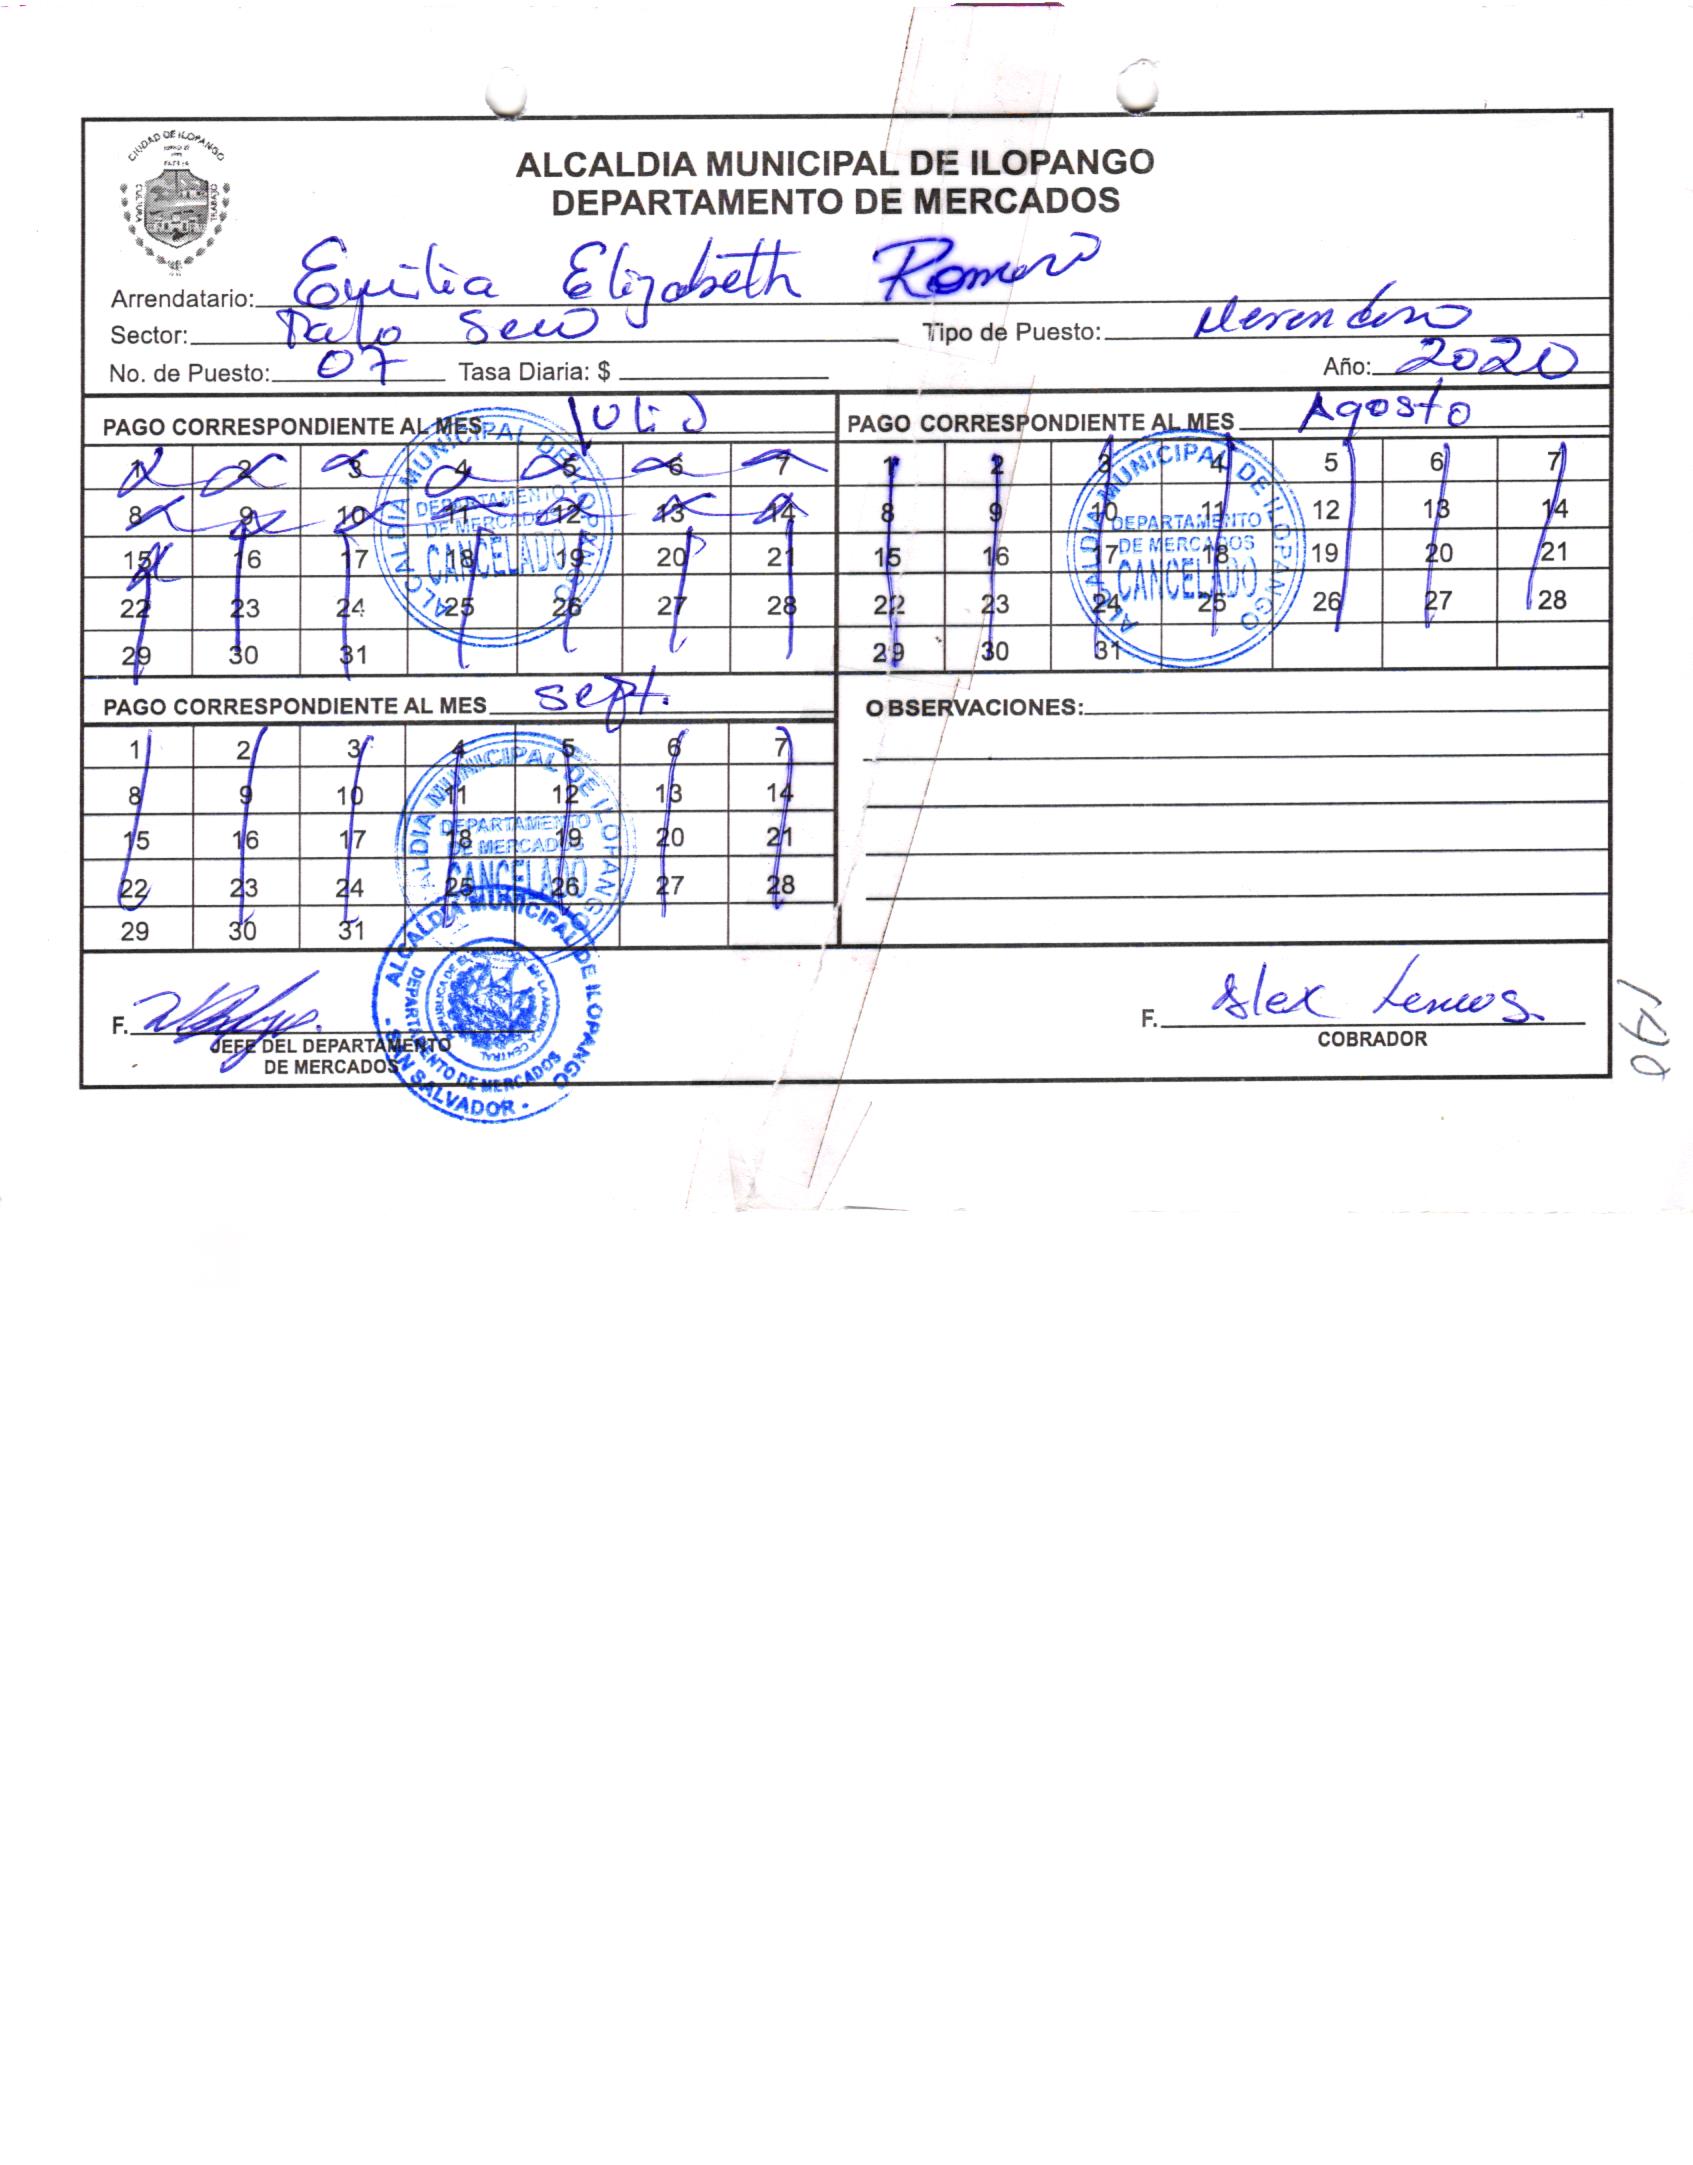 CIUDAD DE ILOPANGO
CULTURA
TRABAJO
ALCALDIA MUNICIPAL DE ILOPANGO
DEPARTAMENTO DE MERCADOS
Arrendatario: Emilia Elizabeth Romero
Sector: Palo Seco Tipo de Puesto: Merendero
No. de Puesto: 07 Tasa Diaria: $ Año: 2020
PAGO CORRESPONDIENTE AL MES Julio
1 2 3 4 5 6 7
8 9 10 11 12 13 14
15 16 17 18 19 20 21
22 23 24 25 26 27 28
29 30 31
ALCALDIA MUNICIPAL DE ILOPANGO
DEPARTAMENTO
DE MERCADOS
CANCELADO
PAGO CORRESPONDIENTE AL MES Agosto
1 2 3 4 5 6 7
8 9 10 11 12 13 14
15 16 17 18 19 20 21
22 23 24 25 26 27 28
29 30 31
ALCALDIA MUNICIPAL DE ILOPANGO
DEPARTAMENTO
DE MERCADOS
CANCELADO
PAGO CORRESPONDIENTE AL MES Sept.
1 2 3 4 5 6 7
8 9 10 11 12 13 14
15 16 17 18 19 20 21
22 23 24 25 26 27 28
29 30 31
ALCALDIA MUNICIPAL DE ILOPANGO
DEPARTAMENTO
DE MERCADOS
CANCELADO
OBSERVACIONES:
F.
JEFE DEL DEPARTAMENTO
DE MERCADOS
ALCALDIA MUNICIPAL DE ILOPANGO
DEPARTAMENTO DE MERCADOS
- SAN SALVADOR -
F. Alex Lemus.
COBRADOR